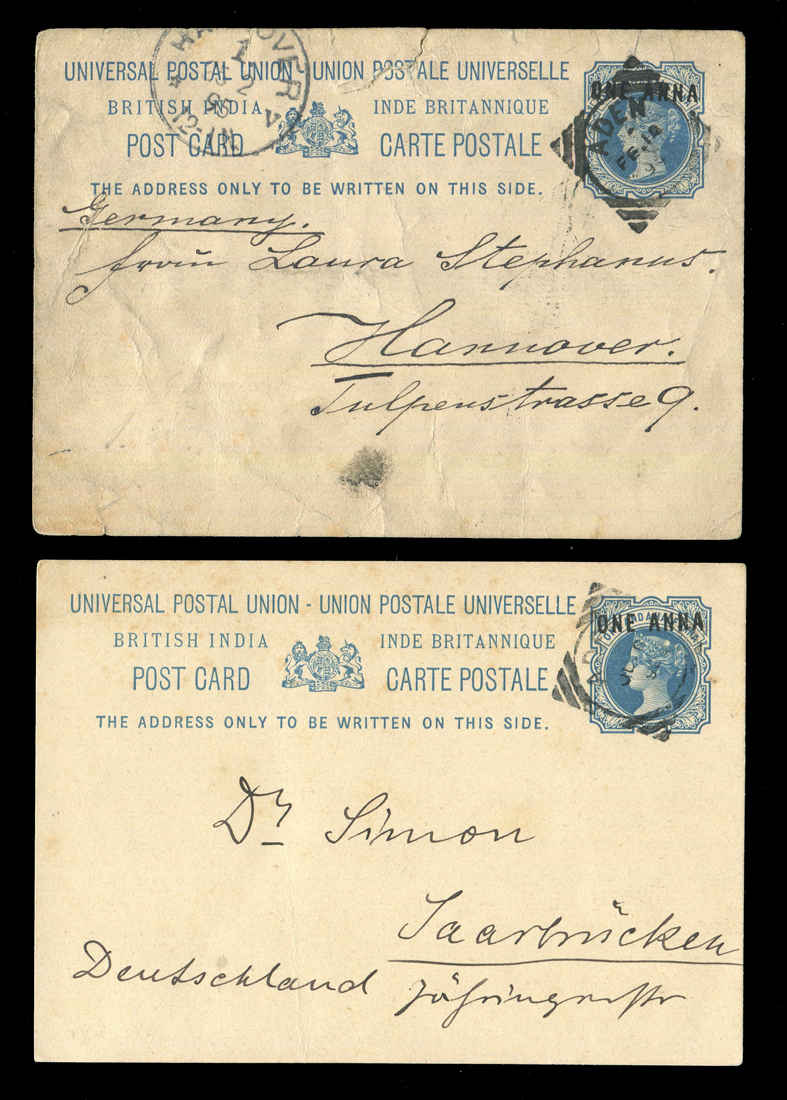 HANNOVER
1
2
95
12-1N.
V
UNIVERSAL POSTAL UNION - UNION POSTALE UNIVERSELLE
BRITISH INDIA INDE BRITANNIQUE
POST CARD CARTE POSTALE
THE ADDRESS ONLY TO BE WRITTEN ON THIS SIDE.
ONE ANNA
ADEN
Germany.
Frau Laura Stephanus.
Hannover.
Tulpenstrasse 9.
UNIVERSAL POSTAL UNION - UNION POSTALE UNIVERSELLE
BRITISH INDIA INDE BRITANNIQUE
POST CARD CARTE POSTALE
THE ADDRESS ONLY TO BE WRITTEN ON THIS SIDE.
ONE ANNA
Dr Simon
Saarbrücken
Deutschland